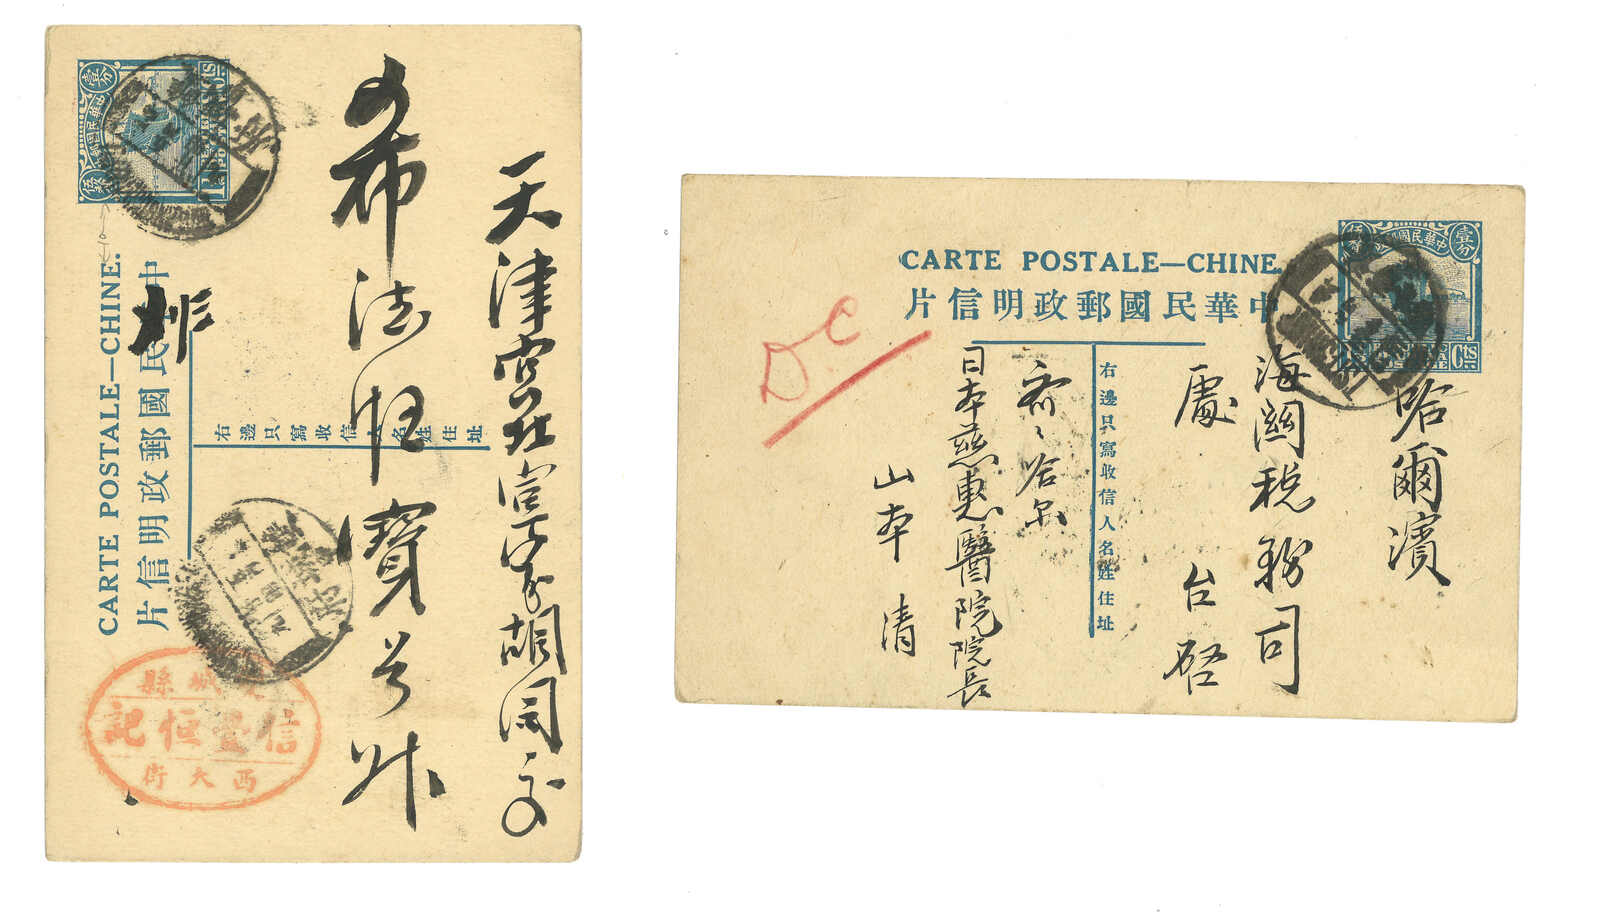 CARTE POSTALE—CHINE.
中華民國郵政明信片
右邊只寫收信人名姓住址
天津宮北宮家胡同交
希
法恒寶号升
城縣
信壹恒記
西大街
CARTE POSTALE—CHINE.
中華民國郵政明信片
中華民國郵政
壹分
Cts
右邊只寫收信人名姓住址
哈爾濱
海關税務司
處 台啓
齊々哈尔
日本慈惠醫院院長
山本 清
DC